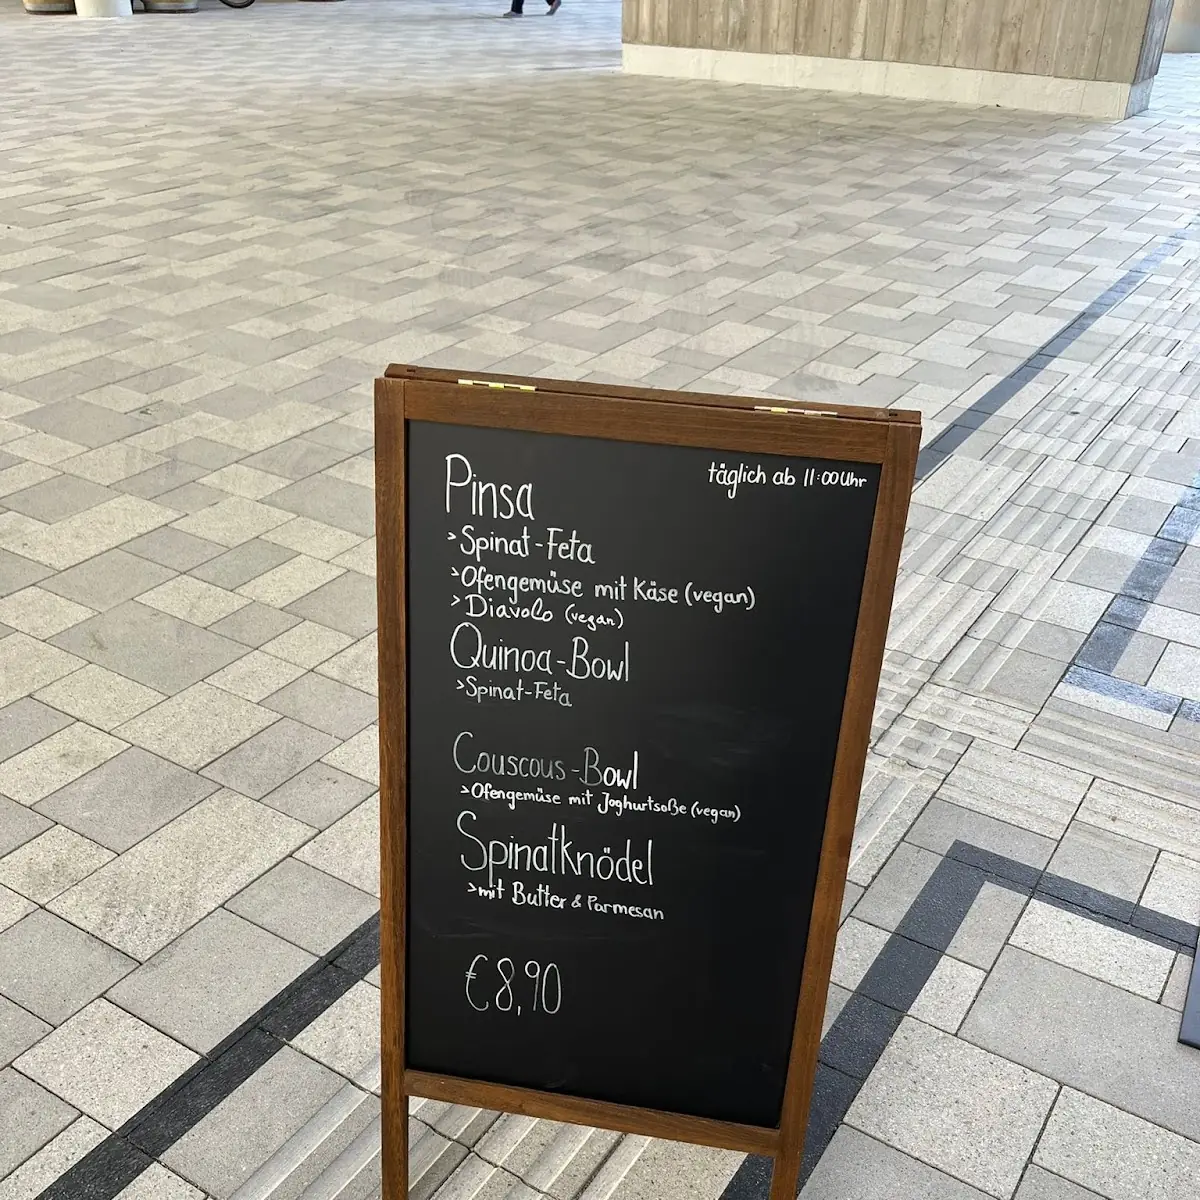 täglich ab 11:00 Uhr
Pinsa
>Spinat-Feta
>Ofengemüse mit Käse (vegan)
>Diavolo (vegan)
Quinoa-Bowl
>Spinat-Feta
Couscous-Bowl
>Ofengemüse mit Joghurtsoße (vegan)
Spinatknödel
>mit Butter & Parmesan
€8,90